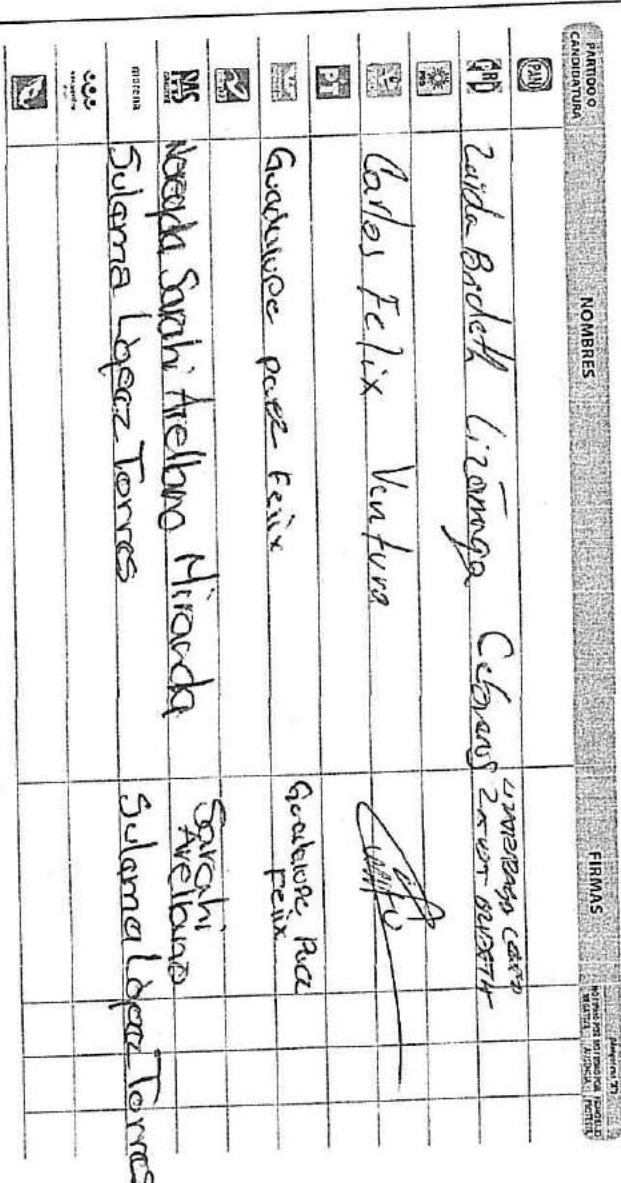 PARTIDO O
CANDIDATURA
NOMBRES
FIRMAS
PAN
PRI
Zaida Brideth Lizarraga
PRD
Carlos Felix Ventura
PT
Guadalupe Paez Felix
Guadalupe Paez
Felix
PAS
Sarahi Arellano Miranda
Sarahi
Arellano
morena
Sulema López Torres
Sulema López Torres